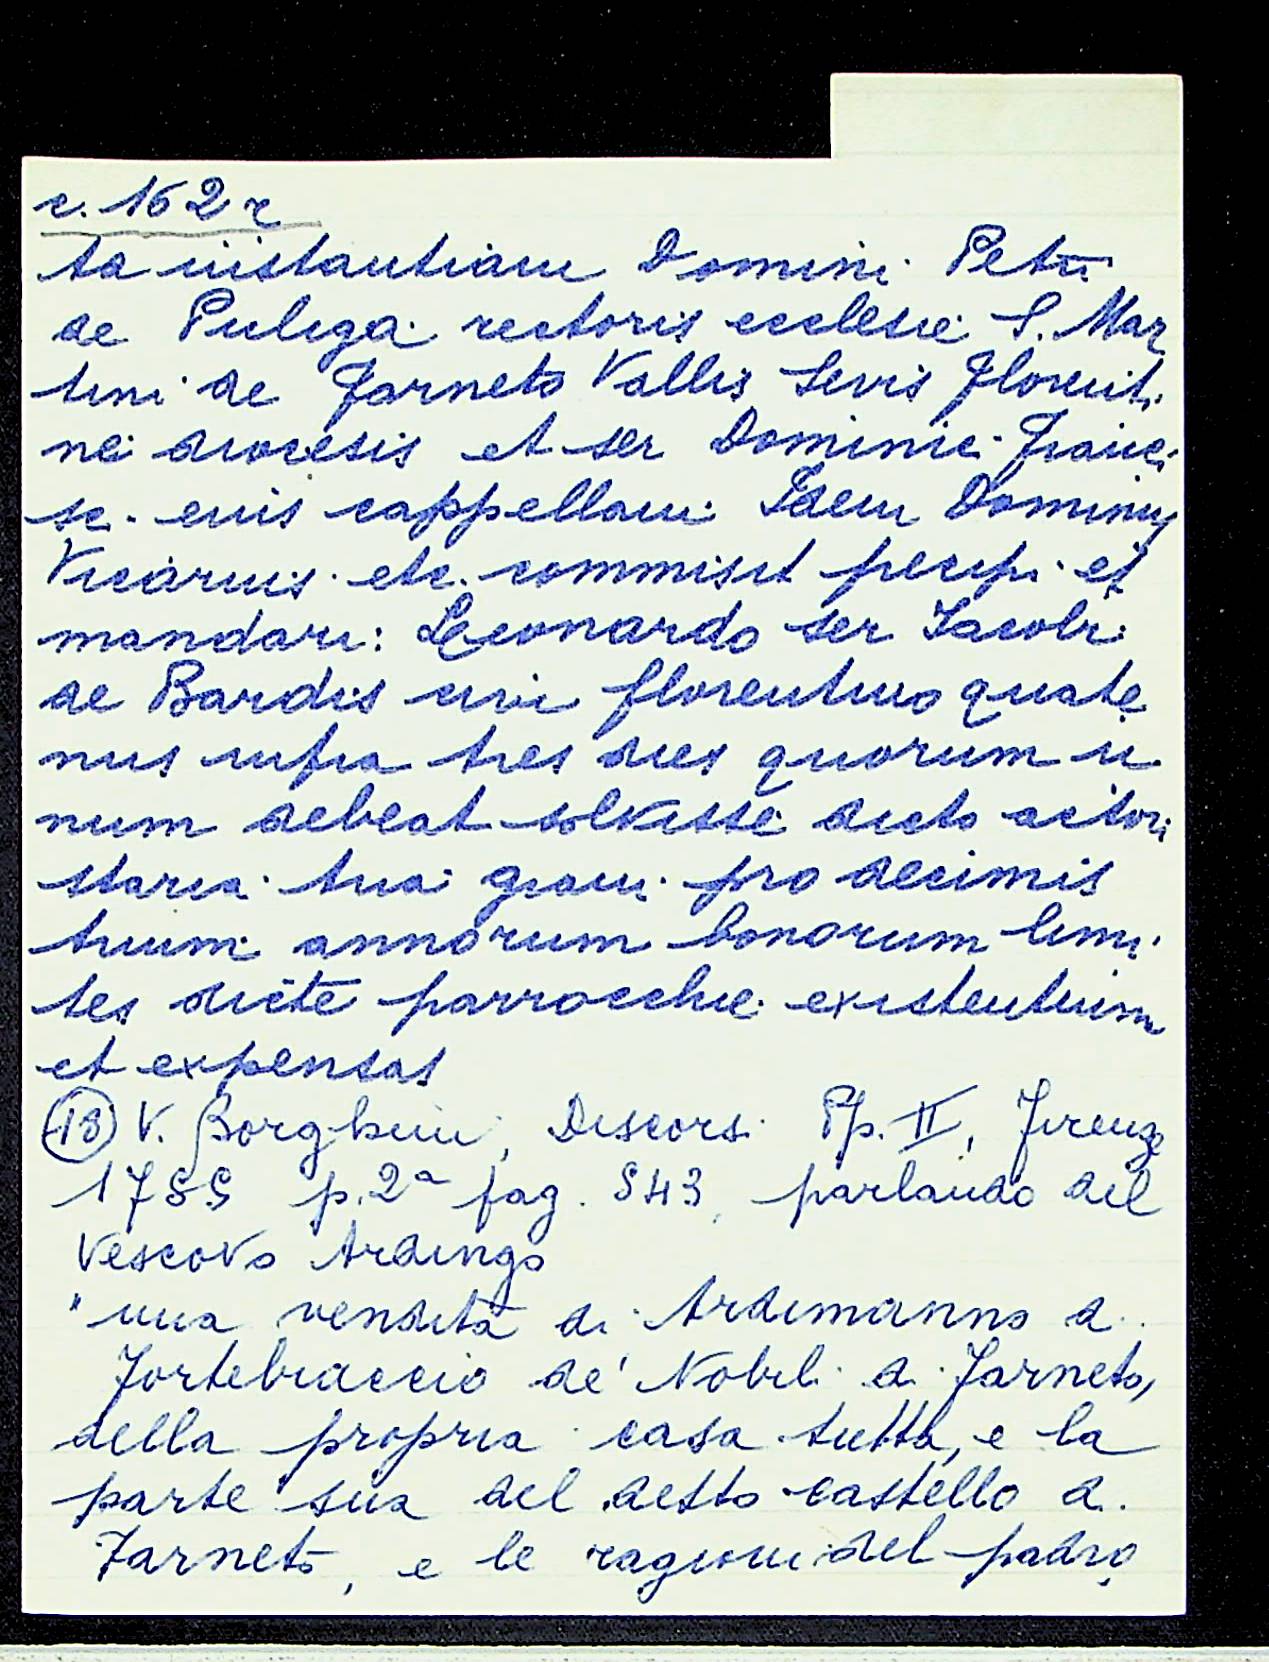 c. 162 r
ta instantiam Domini Petri
de Puliga rectoris ecclesie S. Mar
tini de Farneto Vallis Sevis Florenti
ne diocesis et ser Dominici Franci
sci eius cappellani Idem Dominus
Vicarius etc. commisit precipi et
mandari: Leonardo ser Iacobi
de Bardis civi florentino quate
nus infra tres dies quorum u
num debeat solvisse dicto actori
staria tria grani pro decimis
trium annorum bonorum limi
tes dicte parrocchie existentium
et expensas
(13) V. Borghini, Discorsi Pp. II, Firenze
1755 p. 2ª pag. 543, parlando del
Vescovo Ardingo
"una vendita di Ardimanno di
Fortebraccio de' Nobili di Farneto,
della propria casa tutta, e la
parte sua del detto castello di
Farneto, e le ragioni del padro